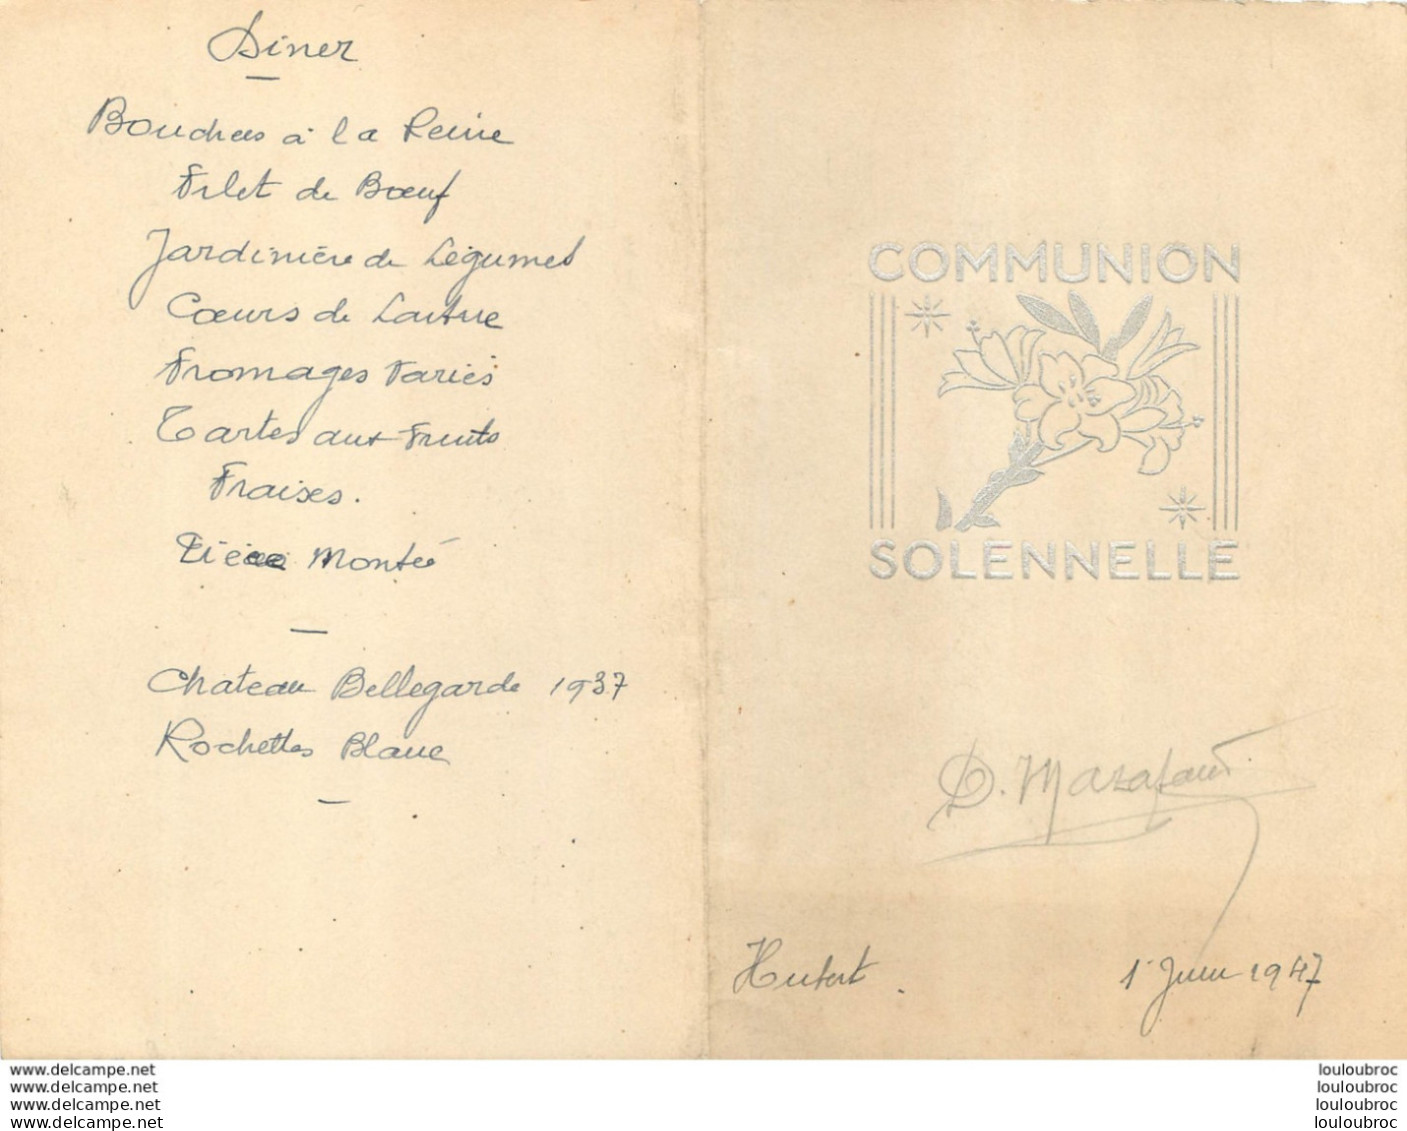 Diner
Bouchees à la Reine
Filet de Bœuf
Jardinière de Légumes
Cœurs de Laitue
Fromages Variés
Tartes aux Fruits
Fraises.
Pièce Montée
Chateau Bellegarde 1937
Rochettes Blanc
COMMUNION
SOLENNELLE
D.
Hubert.
1 Juin 1947
www.delcampe.net
www.delcampe.net
www.delcampe.net
www.delcampe.net
louloubroc
louloubroc
louloubroc
louloubroc